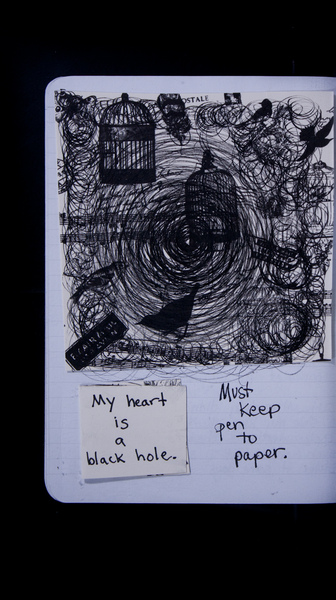 OSTALE
My heart
is
a
black hole.
Must
keep
pen
to
paper.